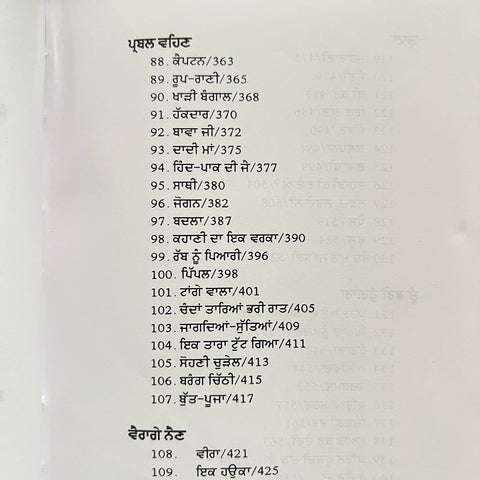 ਪ੍ਰਬਲ ਵਹਿਣ
88. ਕੈਪਟਨ/363
89. ਰੂਪ-ਰਾਣੀ/365
90. ਖਾੜੀ ਬੰਗਾਲ/368
91. ਹੱਕਦਾਰ/370
92. ਬਾਵਾ ਜੀ/372
93. ਦਾਦੀ ਮਾਂ/375
94. ਹਿੰਦ-ਪਾਕ ਦੀ ਜੇ/377
95. ਸਾਥੀ/380
96. ਜੋਗਨ/382
97. ਬਦਲਾ/387
98. ਕਹਾਣੀ ਦਾ ਇਕ ਵਰਕਾ/390
99. ਰੱਬ ਨੂੰ ਪਿਆਰੀ/396
100. ਪਿੱਪਲ/398
101. ਟਾਂਗੇ ਵਾਲਾ/401
102. ਚੰਦਾਂ ਤਾਰਿਆਂ ਭਰੀ ਰਾਤ/405
103. ਜਾਗਦਿਆਂ-ਸੁੱਤਿਆਂ/409
104. ਇਕ ਤਾਰਾ ਟੁੱਟ ਗਿਆ/411
105. ਸੋਹਣੀ ਚੁੜੇਲ/413
106. ਬਰੰਗ ਚਿੱਠੀ/415
107. ਬੁੱਤ-ਪੂਜਾ/417
ਵੈਰਾਗੇ ਨੈਣ
108. ਵੀਰਾ/421
109. ਇਕ ਹਉਕਾ/425